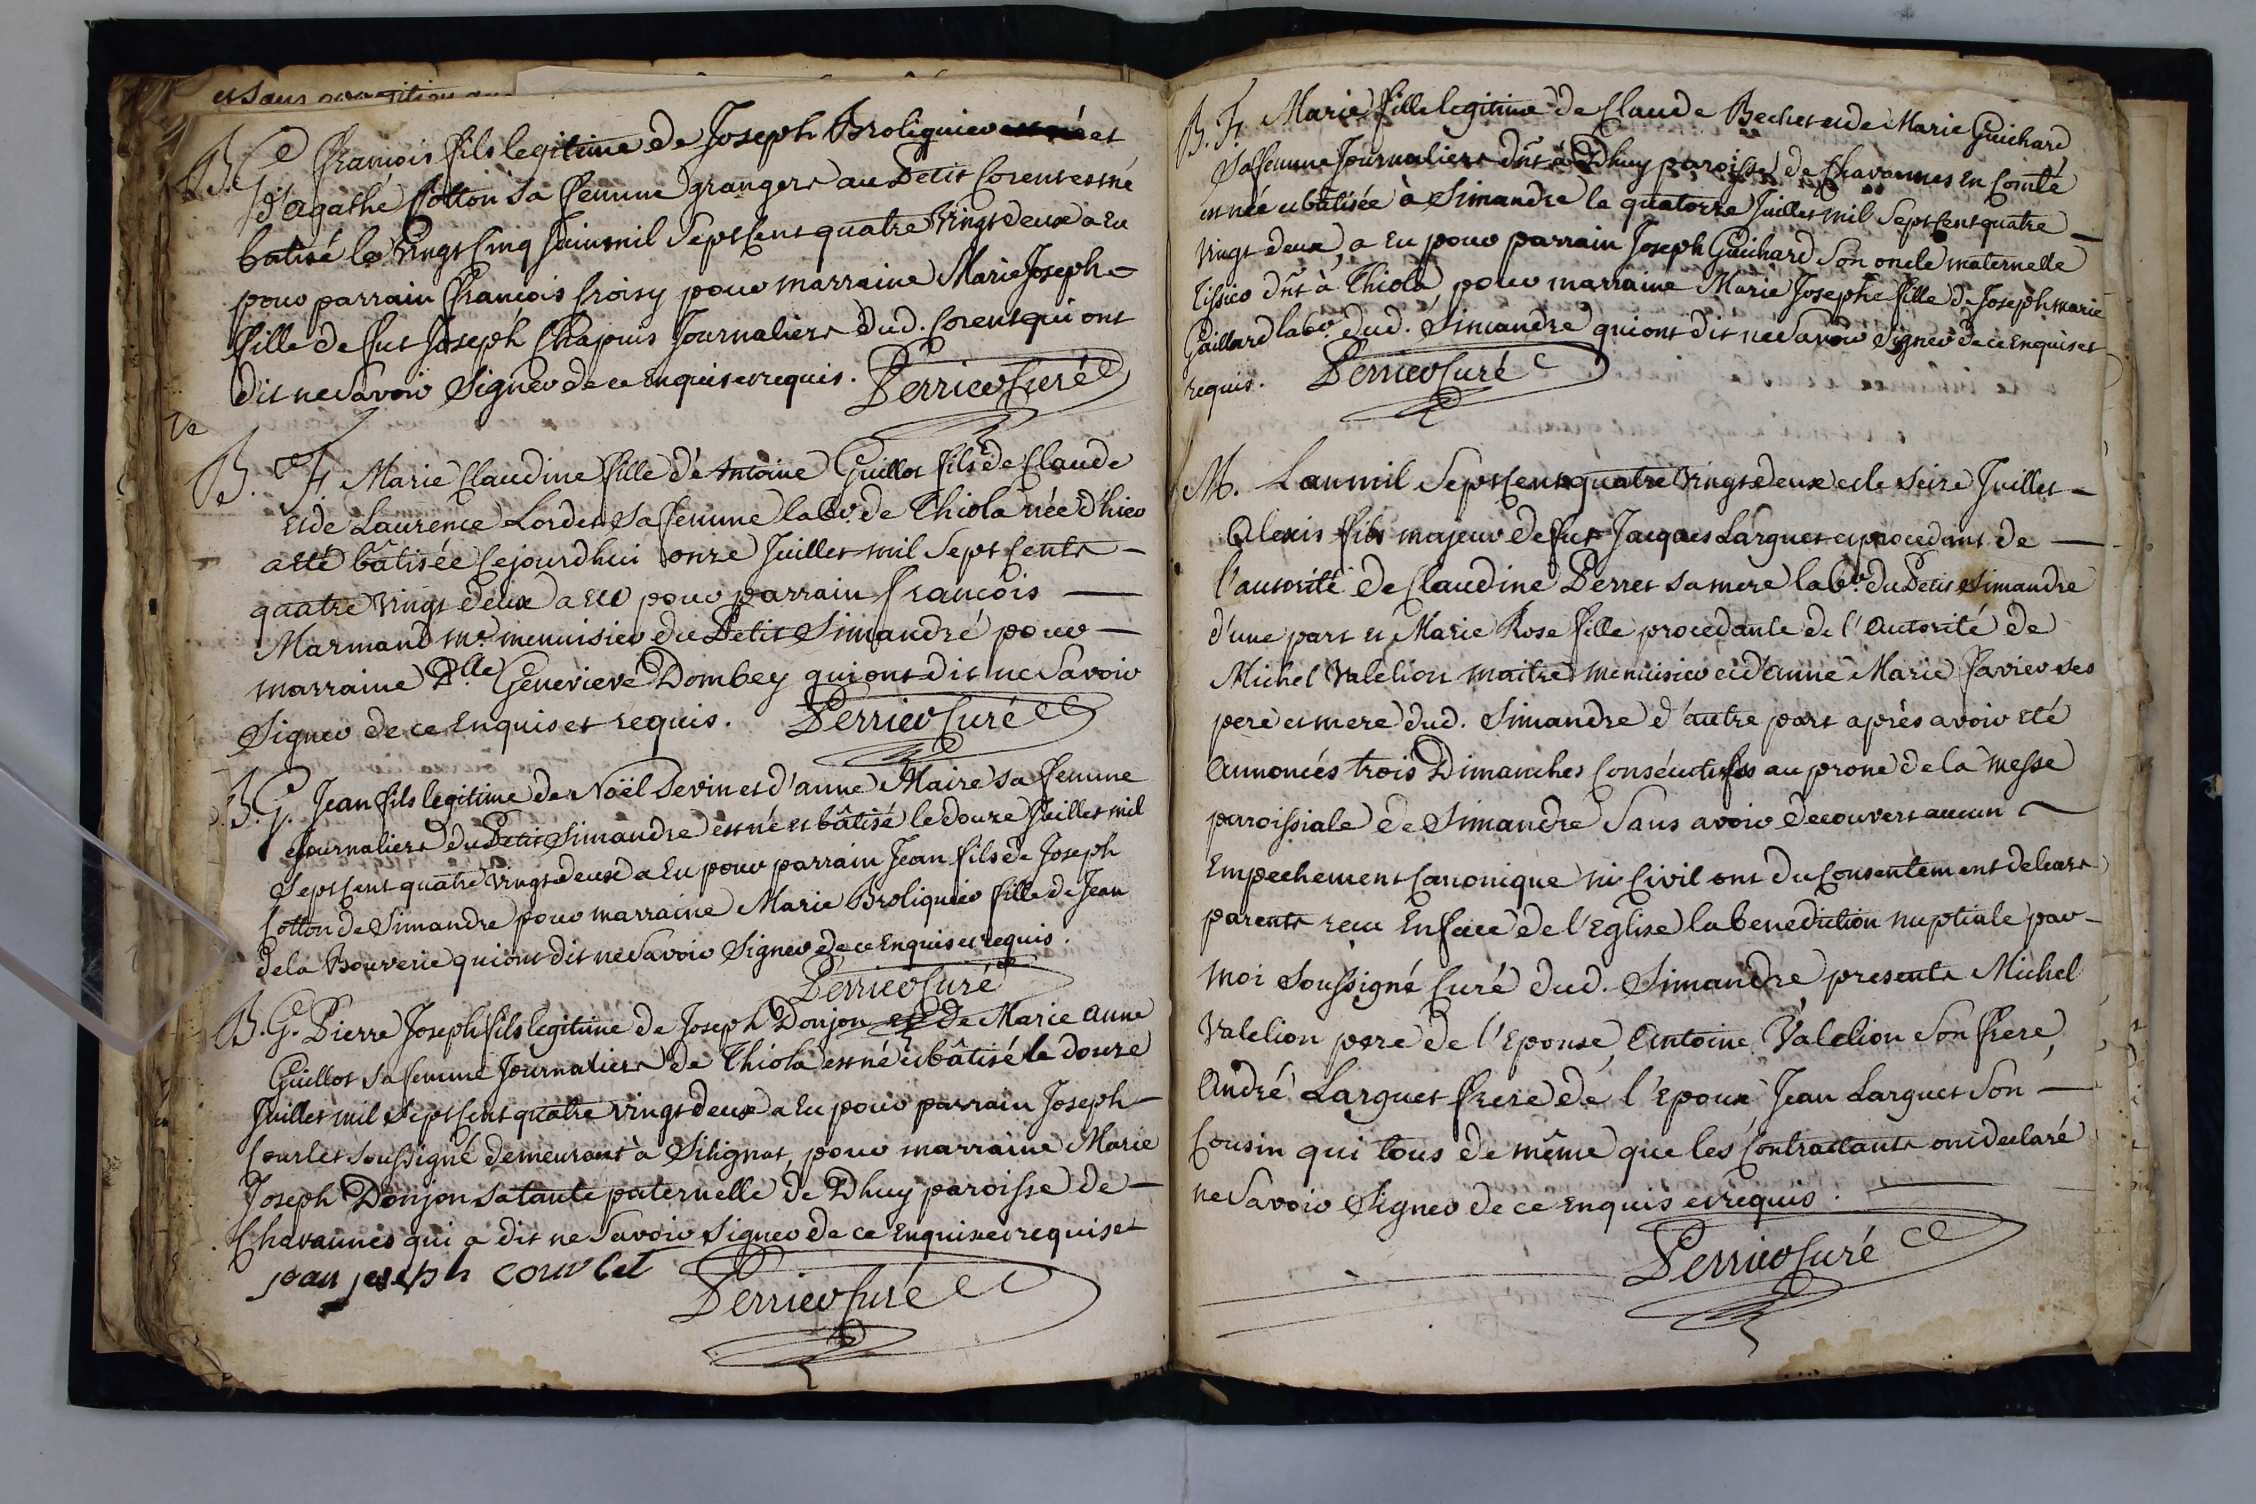 et sans
B. G. François fils legitime de Joseph Broliquier et
d'agathe Cotton sa femme grangers au Petit Corent est né
batisé le vingt Cinq Juin mil Sept Cent quatre vingt deux a Eu
pour parrain François Croisy pour marraine Marie Joseph
fille de fut Joseph Chapuis Journaliers dud. Corent qui ont
dit ne Savoir Signer de ce Enquis et requis. Perrier Curé
B. F. Marie Claudine fille d'Antoine Guillot fils de Claude
et de Laurence Lordet sa femme labr. de Thiola née d'hier
a eté bâtisée Cejourdhui onze Juillet mil Sept Cents
quatre vingt deux a eu pour parrain François
Marmand me. menuisier du Petit Simandre pour
marraine Dlle Genevieve Dombey qui ont dit ne Savoir
Signer de ce Enquis et requis. Perrier Curé
B. G. Jean fils legitime de Noël Sevin et d'anne Maire sa femme
Journaliers du Petit Simandre est né et bâtisé le douze Juillet mil
Sept Cent quatre vingt deux a Eu pour parrain Jean fils de Joseph
Cotton de Simandre pour marraine Marie Broliquier fille de Jean
de la Bouverie qui ont dit ne Savoir Signer de ce Enquis et requis.
Perrier Curé
B. G. Pierre Joseph fils legitime de Joseph Donjon et de Marie anne
Guillot sa femme Journaliers de Thiola est né et bâtisé le douze
Juillet mil Sept Cent quatre vingt deux a Eu pour parrain Joseph
Courlet Soussigné demeurant à Silignat, pour marraine Marie
Joseph Donjon sa tante paternelle de Dhuy paroisse de
Chavannes qui a dit ne Savoir Signer de ce Enquise et requise
jean joseph courlet
Perrier Curé
B. F. Marie fille legitime de Claude Bechet et de Marie Guichard
Sa femme Journaliers dnt à Dhuy paroisse de Chavannes en Comté
est née et bâtisée à Simandre le quatorze Juillet mil Sept Cent quatre
vingt deux, a Eu pour parrain Joseph Guichard Son oncle maternelle
Tissier dnt à Thiola pour marraine Marie Josephe fille de Joseph marie
Gaillard labr. dud. Simandre qui ont dit ne Savoir Signer de ce Enquis et
requis. Perrier Curé
M. L'an mil Sept Cent quatre vingt deux et le Seize Juillet
Alexis fils majeur de fut Jacques Larguet et procedant de
l'autorité de Claudine Perret sa mere labr. du Petit Simandre
d'une part et Marie Rose fille procedante de l'Autorité de
Michel Valelion maitre menuisier et d'Anne Marie Favier ses
pere et mere dud. Simandre d'autre part après avoir eté
Annoncés trois Dimanches Consécutifs au prone de la Messe
paroissiale de Simandre Sans avoir decouvert aucun
Empechement Canonique ni Civil ont du Consentement de leurs
parents recu En face de l'Eglise la benediction nuptiale par
moi Soussigné Curé dud. Simandre, presents Michel
Valelion pere de l'Epouse, Antoine Valelion Son frere,
André Larguet frere de l'Epoux Jean Larguet Son
Cousin qui tous de même que les Contractants ont declaré
ne Savoir Signer de ce Enquis et requis.
Perrier Curé